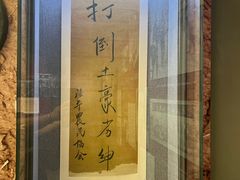 打倒土豪劣绅
农民协会